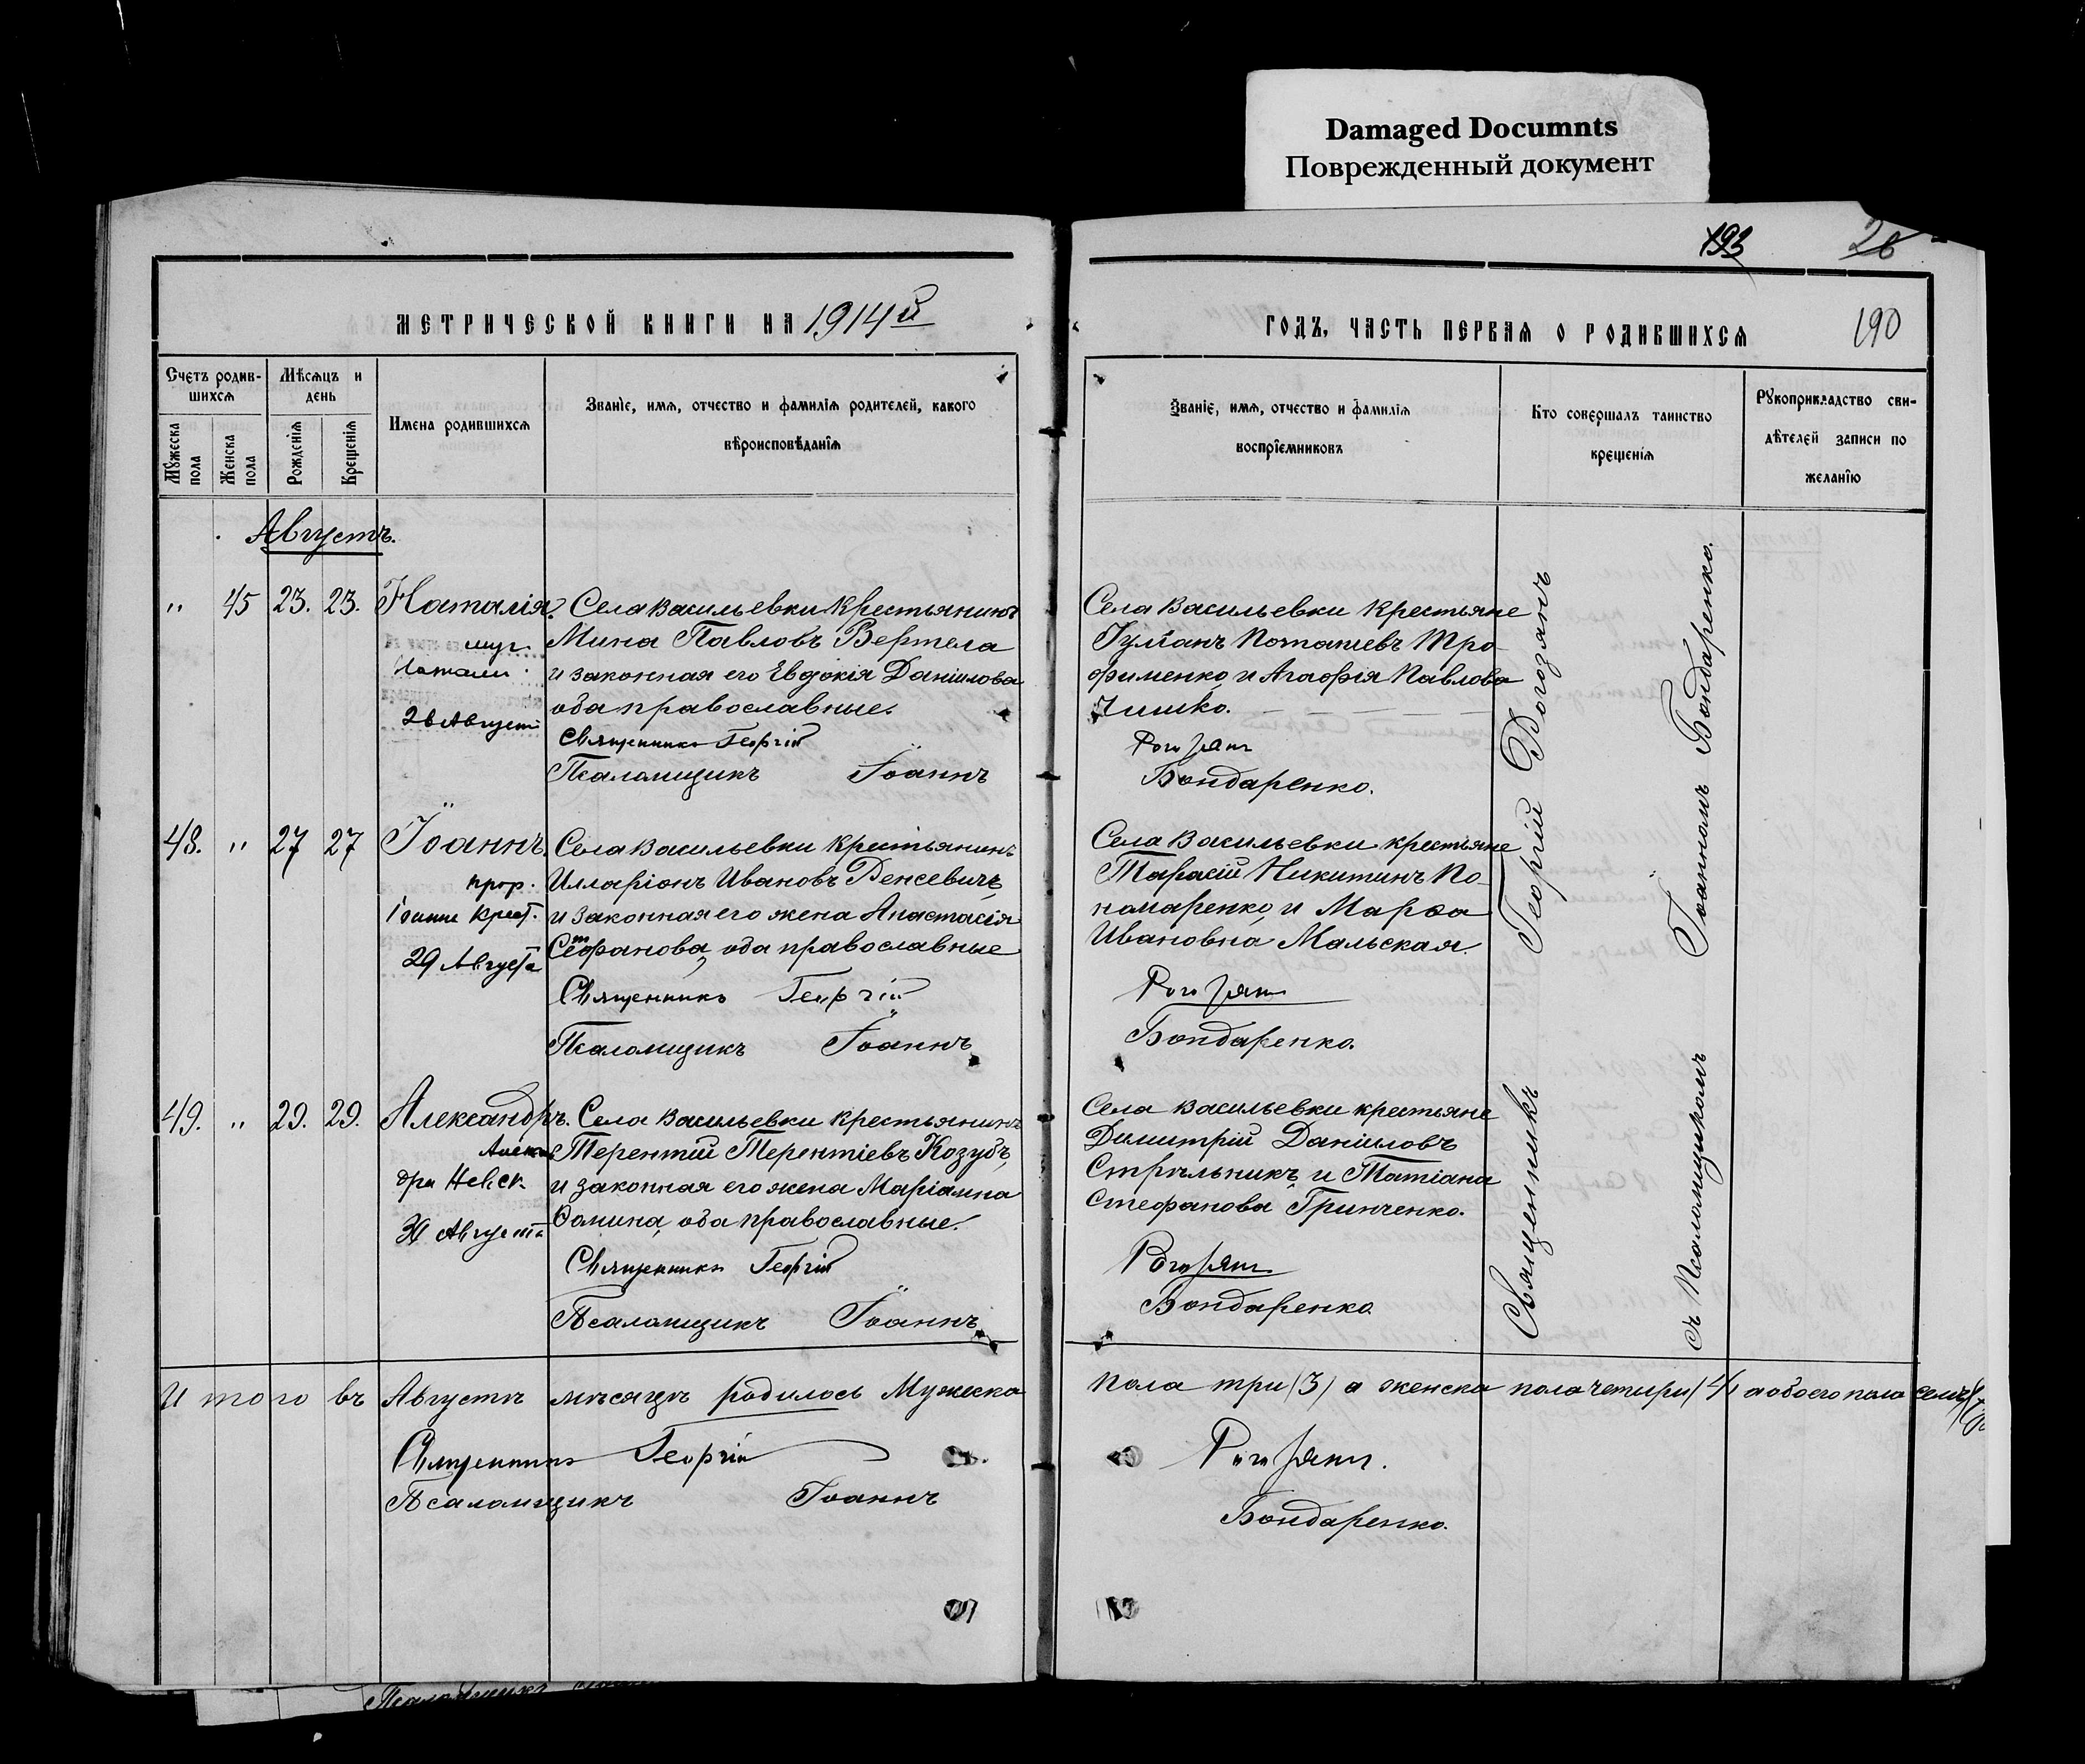 Damaged Documnts
Поврежденный документ
193
26
190
МЕТРИЧЕСКОЙ КНИГИ НА 1914й
ГОДЪ, ЧАСТЬ ПЕРВАЯ О РОДИВШИХСЯ
Счетъ родив-
шихся
Мужеска пола
Женска пола
Мѣсяцъ и
день
Рожденія
Крещенія
Имена родившихся
Званіе, имя, отчество и фамилія родителей, какого
вѣроисповѣданія
Званіе, имя, отчество и фамилія
воспріемниковъ
Кто совершалъ таинство
крещенія
Рукоприкладство сви-
дѣтелей записи по
желанію
Августъ.
" 45 23. 23. Наталія.
муч.
Натали
26 Август
Села Васильевки Крестьянинъ
Мина Павловъ Вертела
и законная его Евдокія Даніилова
оба православные.
Священникъ Георгій
Псаломщикъ Іоаннъ
Села Васильевки Крестьяне
Іуліанъ Потапіевъ Тро-
фименко, и Агафія Павлова
Чишко.
Рогозянъ
Бондаренко.
48. " 27 27 Іоаннъ.
прор.
Іоанна Крест.
29 Августа
Села Васильевки Крестьянинъ
Илларіонъ Ивановъ Денсевичъ
и законная его жена Анастасія
Стефанова, оба православные
Священникъ Георгій
Псаломщикъ Іоаннъ
Села Васильевки крестьяне
Тарасій Никитинъ По-
номаренко, и Марѳа
Ивановна Мальская.
Рогозянъ
Бондаренко.
49. " 29. 29. Александръ.
Алекса
дра Невск.
30 Августа
Села Васильевки крестьянинъ
Терентій Терентіевъ Козубъ,
и законная его жена Маріамна
Ѳомина, оба православные.
Священникъ Георгій
Псаломщикъ Іоаннъ
Села Васильевки крестьяне
Димитрій Даніиловъ
Стрѣльникъ, и Татіана
Стефанова Гринченко.
Рогозянъ
Бондаренко
Священникъ Георгій Рогозянъ
съ Псаломщикомъ Іоанномъ Бондаренко.
Итого въ Августѣ мѣсяцѣ родилось Мужеска
пола три (3) а женска пола четыри (4) а обоего пола семь (7)
Священникъ Георгій
Рогозянъ.
Псаломщикъ Іоаннъ
Бондаренко.